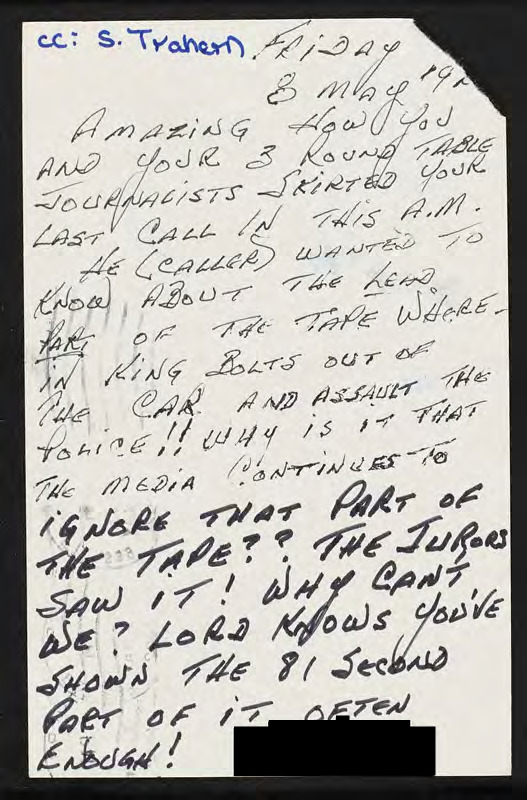 cc: S. Trahern
FRIDAY
8 MAY '92
AMAZING HOW YOU
AND YOUR 3 ROUND TABLE
JOURNALISTS SKIRTED YOUR
LAST CALL IN THIS A.M.
HE (CALLER) WANTED TO
KNOW ABOUT THE LEAD
PART OF THE TAPE WHERE-
IN KING BOLTS OUT OF
THE CAR AND ASSAULT THE
POLICE!! WHY IS IT THAT
THE MEDIA CONTINUES TO
IGNORE THAT PART OF
THE TAPE?? THE JURORS
SAW IT! WHY CAN'T
WE? LORD KNOWS YOU'VE
SHOWN THE 81 SECOND
PART OF IT OFTEN
ENOUGH!